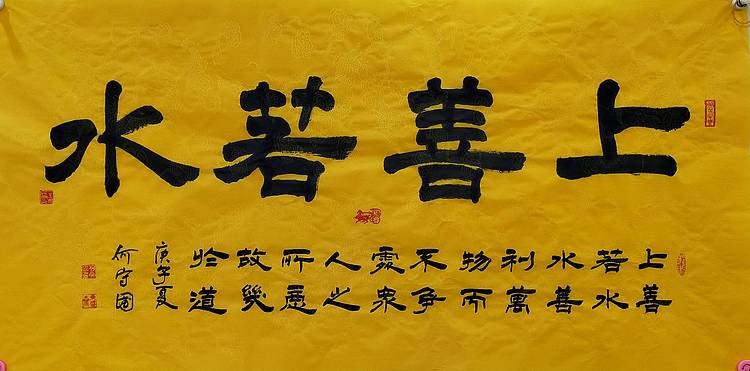 上善若水
上善
若水
水善
利萬
物而
不争
處衆
人之
所惡
故幾
於道
庚子夏
何守國